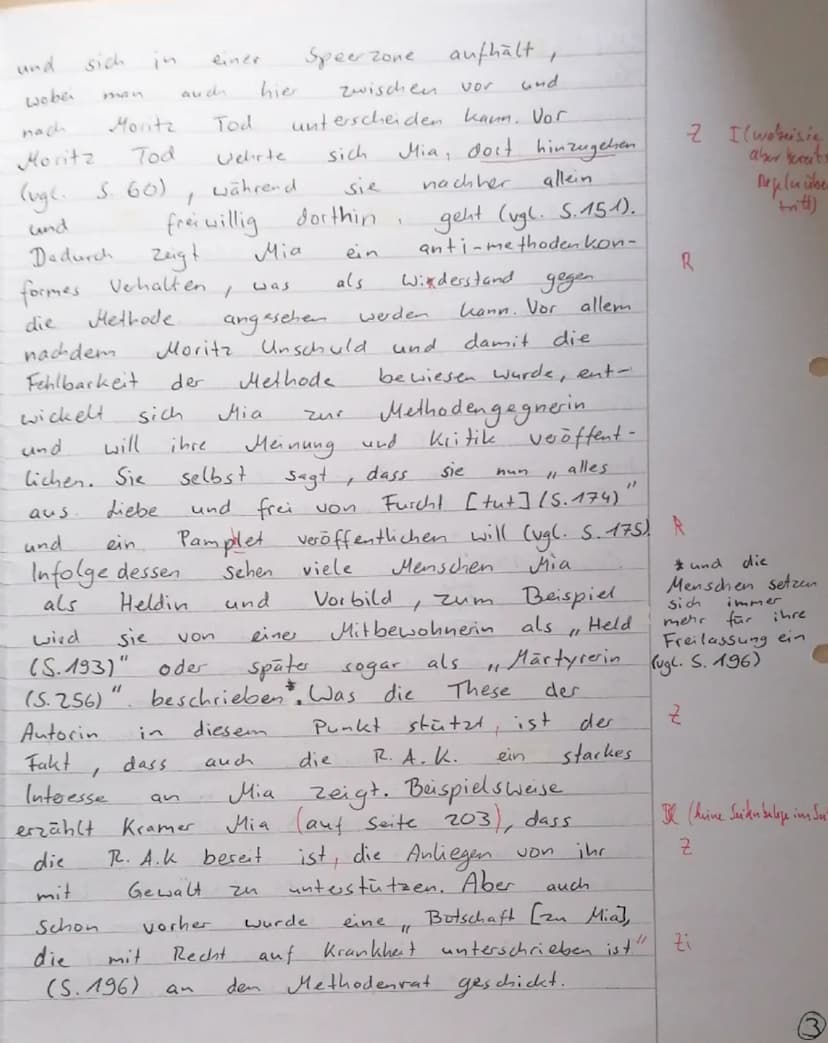 und sich in einer Speerzone aufhält,
wobei man auch hier zwischen vor und
nach Moritz Tod unterscheiden kann. Vor
Moritz Tod wehrte sich Mia, dort hinzugehen
(vgl. S. 60), während sie nachher allein
und freiwillig dorthin geht (vgl. S. 151).
Dadurch zeigt Mia ein anti-methodenkon-
formes Vehalten, was als Widerstand gegen
die Methode angesehen werden kann. Vor allem
nachdem Moritz Unschuld und damit die
Fehlbarkeit der Methode bewiesen wurde, ent-
wickelt sich Mia zur Methodengegnerin
und will ihre Meinung und Kritik veröffent-
lichen. Sie selbst sagt, dass sie nun „alles
aus Liebe und frei von Furcht [tut] (S. 174)"
und ein Pamplet veröffentlichen will (vgl. S. 175)
Infolge dessen sehen viele Menschen Mia
als Heldin und Vorbild, zum Beispiel
wird sie von einer Mitbewohnerin als „Held
(S. 193)" oder später sogar als „Märtyrerin
(S. 256)" beschrieben*. Was die These der
Autorin in diesem Punkt stützt, ist der
Fakt, dass auch die R. A. K. ein starkes
Interesse an Mia zeigt. Beispielsweise
erzählt Kramer Mia (auf Seite 203), dass
die R. A. K bereit ist, die Anliegen von ihr
mit Gewalt zu unterstützen. Aber auch
schon vorher wurde eine „Botschaft [zu Mia],
die mit Recht auf Krankheit unterschrieben ist"
(S. 196) an den Methodenrat geschickt.
Z I (wobei sie
aber bereits
Regeln über
tritt)
R
R
* und die
Menschen setzen
sich immer
mehr für ihre
Freilassung ein
(vgl. S. 196)
Z
(keine Seitenbelege im
Z
Zi
3